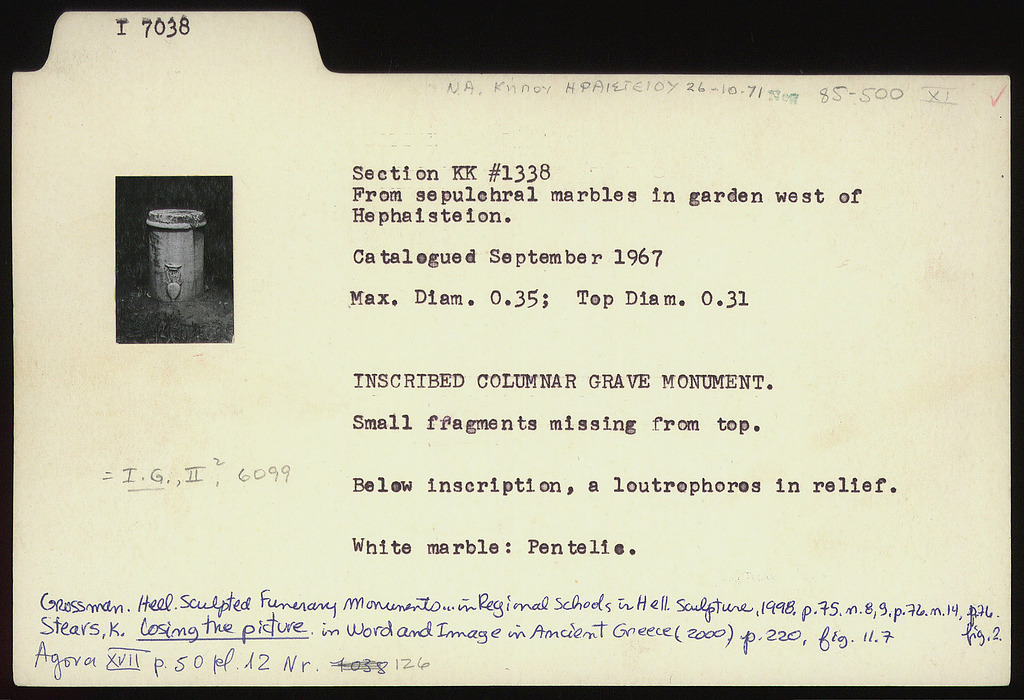 I 7038
ΝΑ. ΚΗΠΟΥ ΗΦΑΙΣΤΕΙΟΥ 26-10-71 Neg 85-500 XI
Section KK #1338
From sepulchral marbles in garden west of
Hephaisteion.
Catalogued September 1967
Max. Diam. 0.35; Top Diam. 0.31
INSCRIBED COLUMNAR GRAVE MONUMENT.
Small fragments missing from top.
= I.G., II², 6099
Below inscription, a loutrophoros in relief.
White marble: Pentelic.
Grossman. Hell. Sculpted Funerary Monuments... in Regional Schools in Hell. Sculpture, 1998, p.75. n.8,9, p.76. n.14, p.76.
fig.2
Stears, K. Losing the picture. in Word and Image in Ancient Greece (2000) p.220, fig. 11.7
Agora XVII p.50 pl.12 Nr. 1038 126